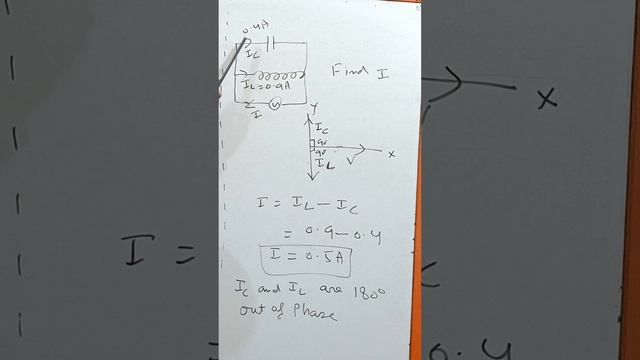 0.4A
I_C
I_L = 0.9A
I
Find I
Y
I_C
90
90
I_L
V
X
I = I_L - I_C
= 0.9 - 0.4
I = 0.5A
I_C and I_L are 180°
out of phase
X
I =
0.4